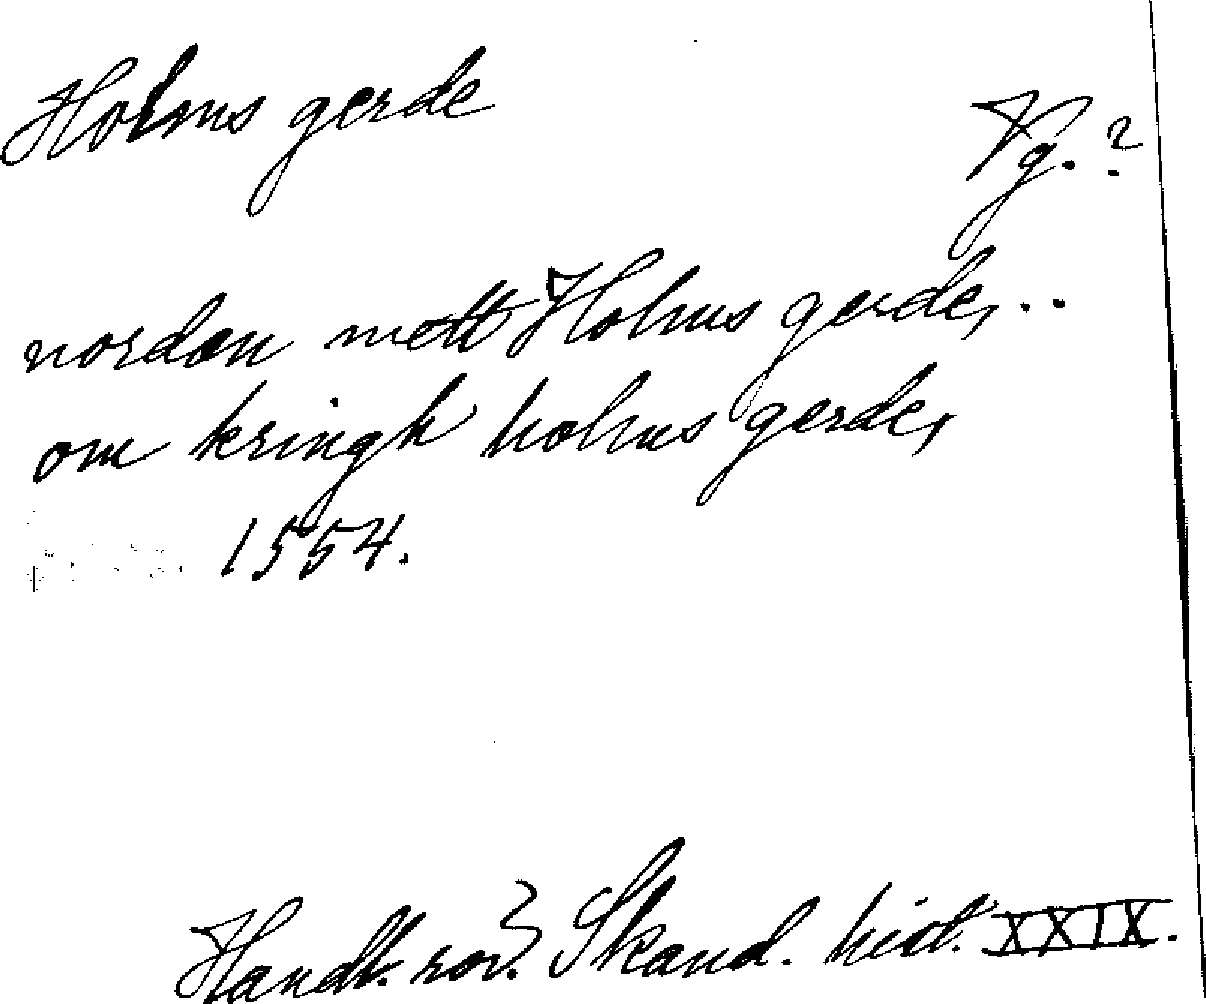 Holms gerde
Vg.?
nordan mett Holms gerde, ..
om kringh holms gerde,
1554.
Handl. rör. Skand. hist. XXIX.